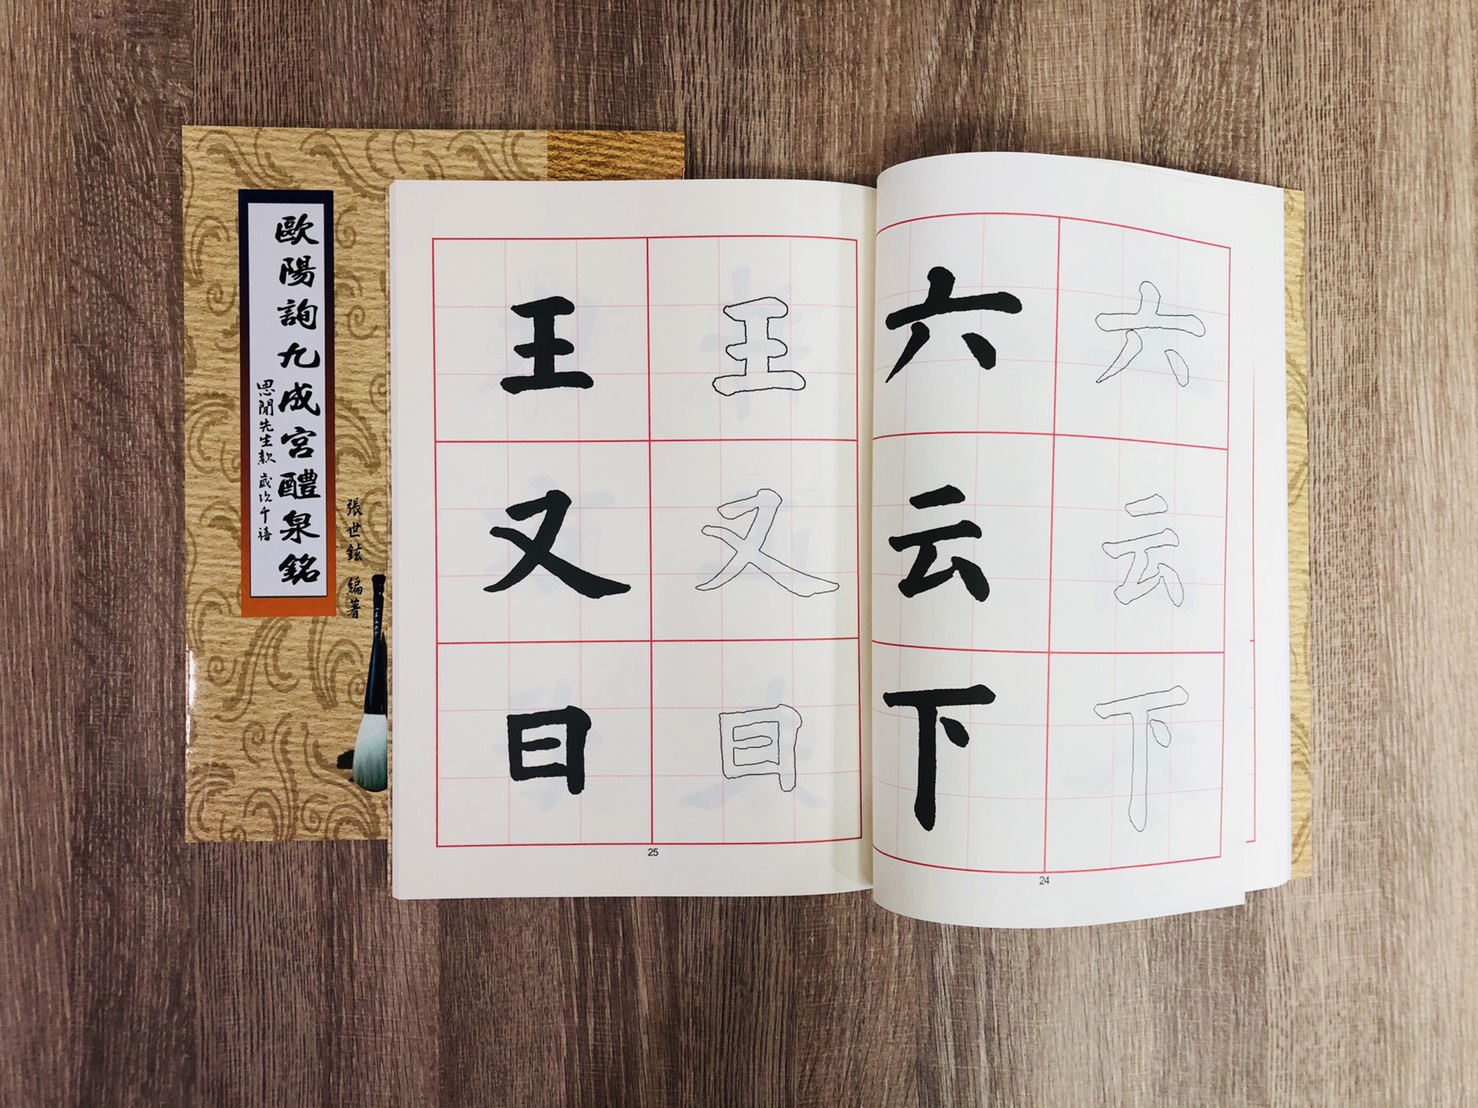 歐陽詢九成宮醴泉銘
先生款 歲次
張世鉉 編著
六 六
云 云
下 下
24
王 王
又 又
日 日
25